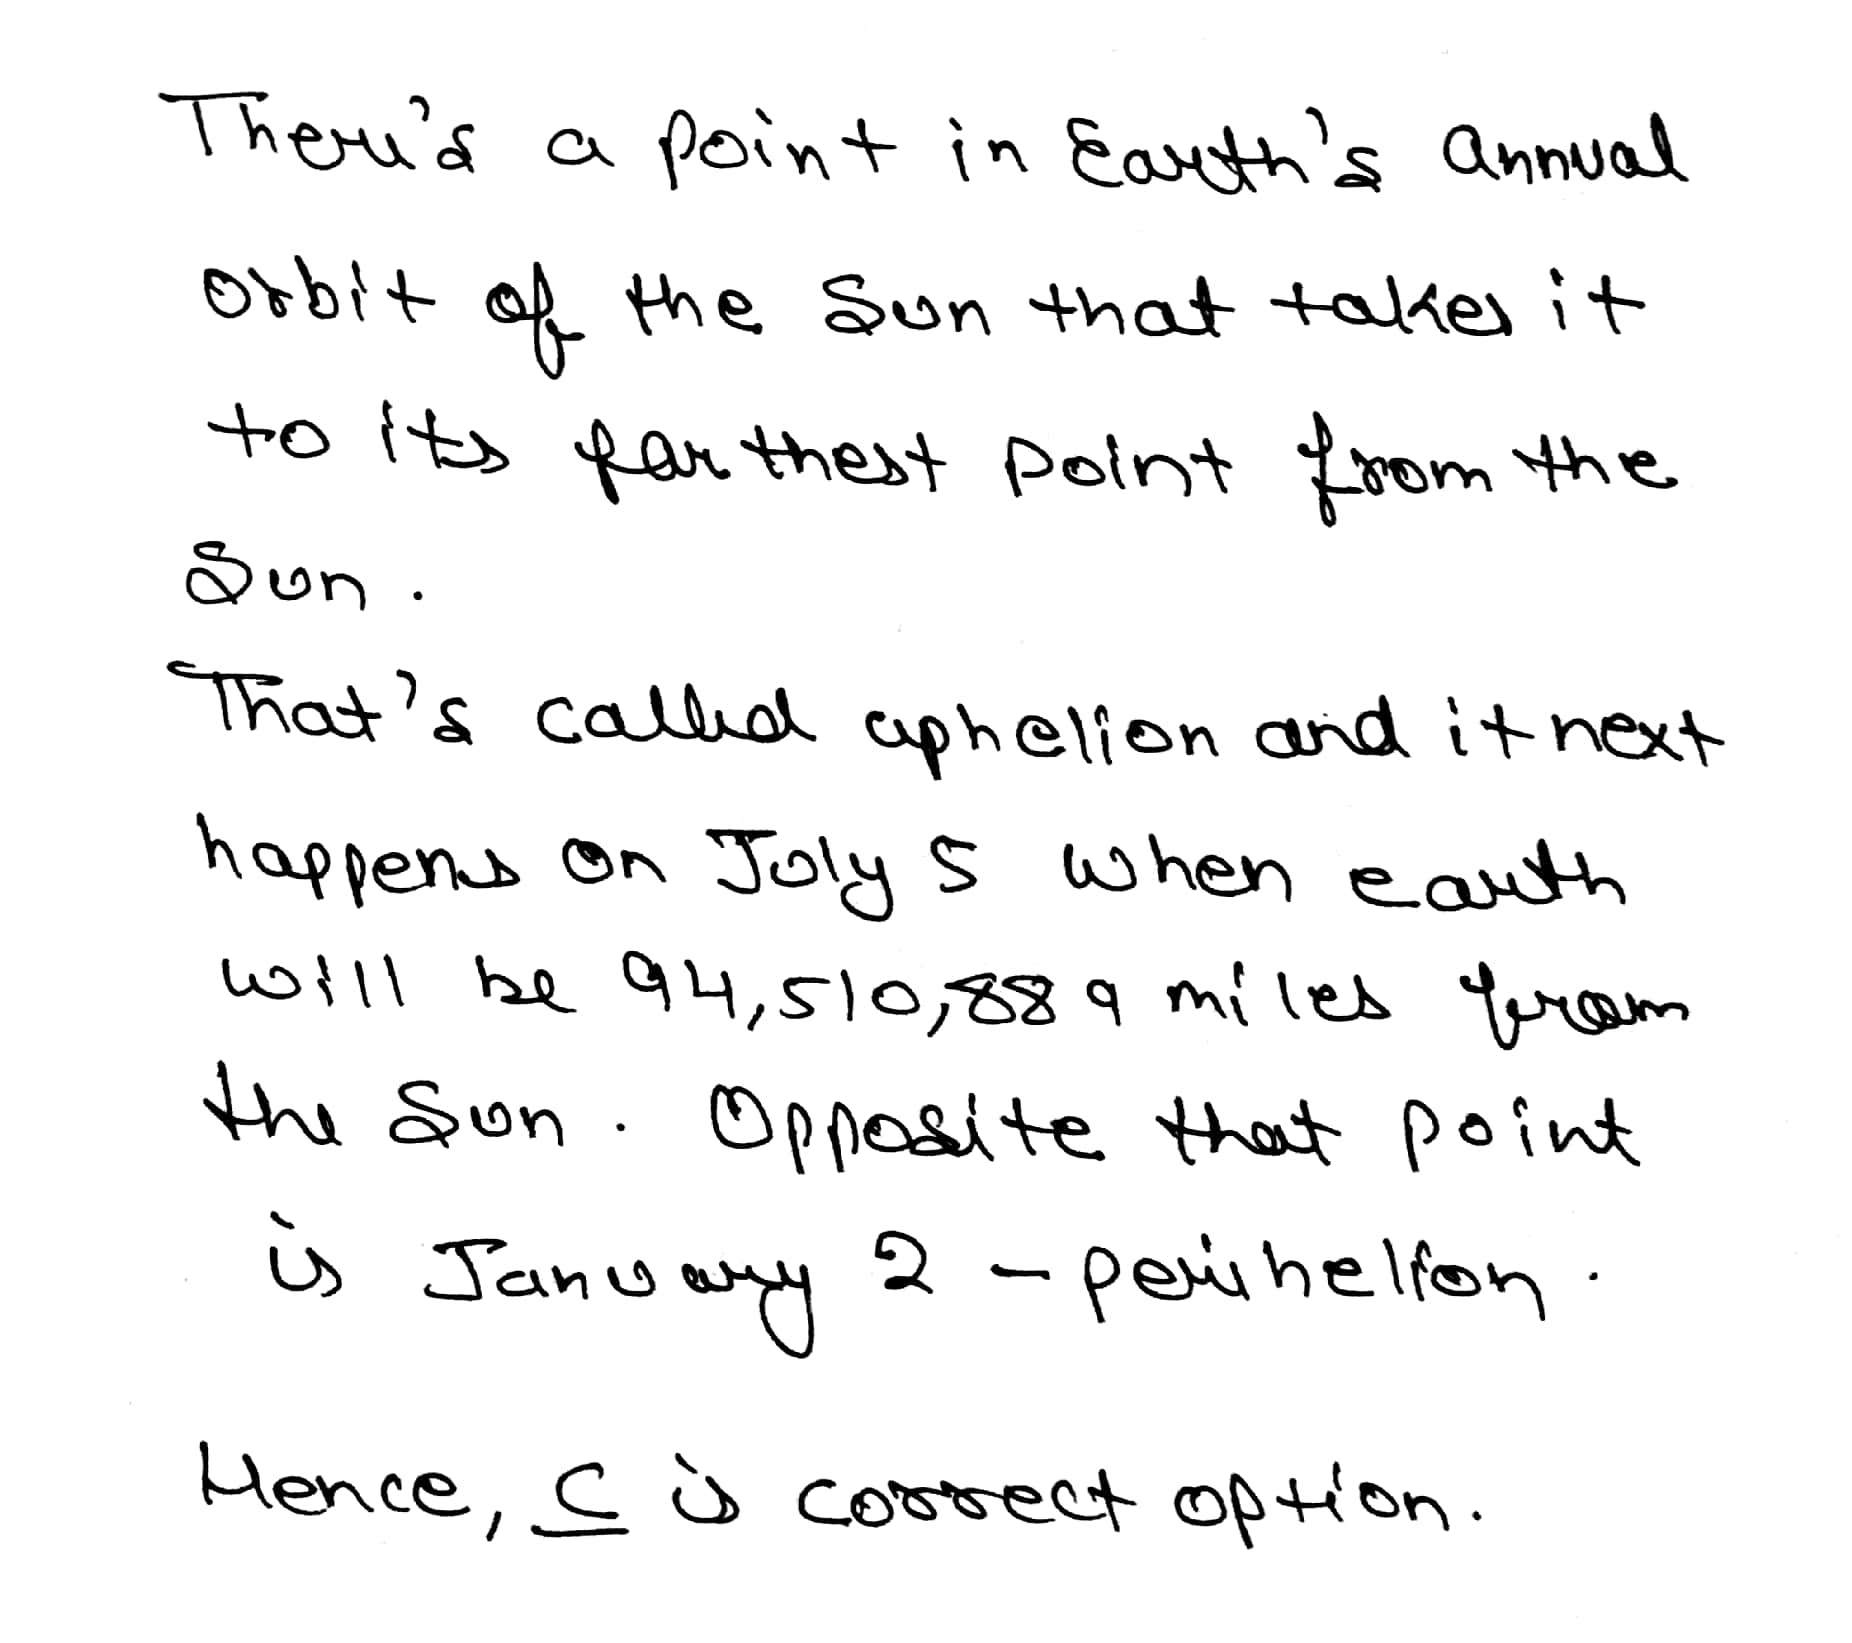 There's a point in Earth's annual
orbit of the Sun that takes it
to its farthest point from the
Sun.
That's called aphelion and it next
happens on July 5 when earth
will be 94,510,889 miles from
the Sun. Opposite that point
is January 2 - perihelion.
Hence, C is correct option.